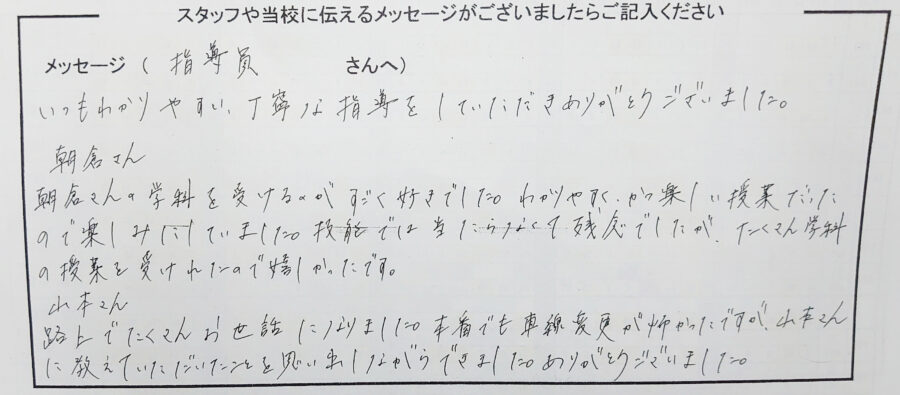 スタッフや当校に伝えるメッセージがございましたらご記入ください
メッセージ ( 指導員 さんへ)
いつもわかりやすい、丁寧な指導をしていただきありがとうございました。
朝倉さん
朝倉さんの学科を受けるのがすごく好きでした。わかりやすく、かつ楽しい授業だった
ので楽しみにしていました。技能では当たらなくて残念でしたが、たくさん学科
の授業を受けれたので嬉しかったです。
山本さん
路上でたくさんお世話になりました。本番でも車線変更が怖かったですが、山本さん
に教えていただいたことを思い出しながらできました。ありがとうございました。